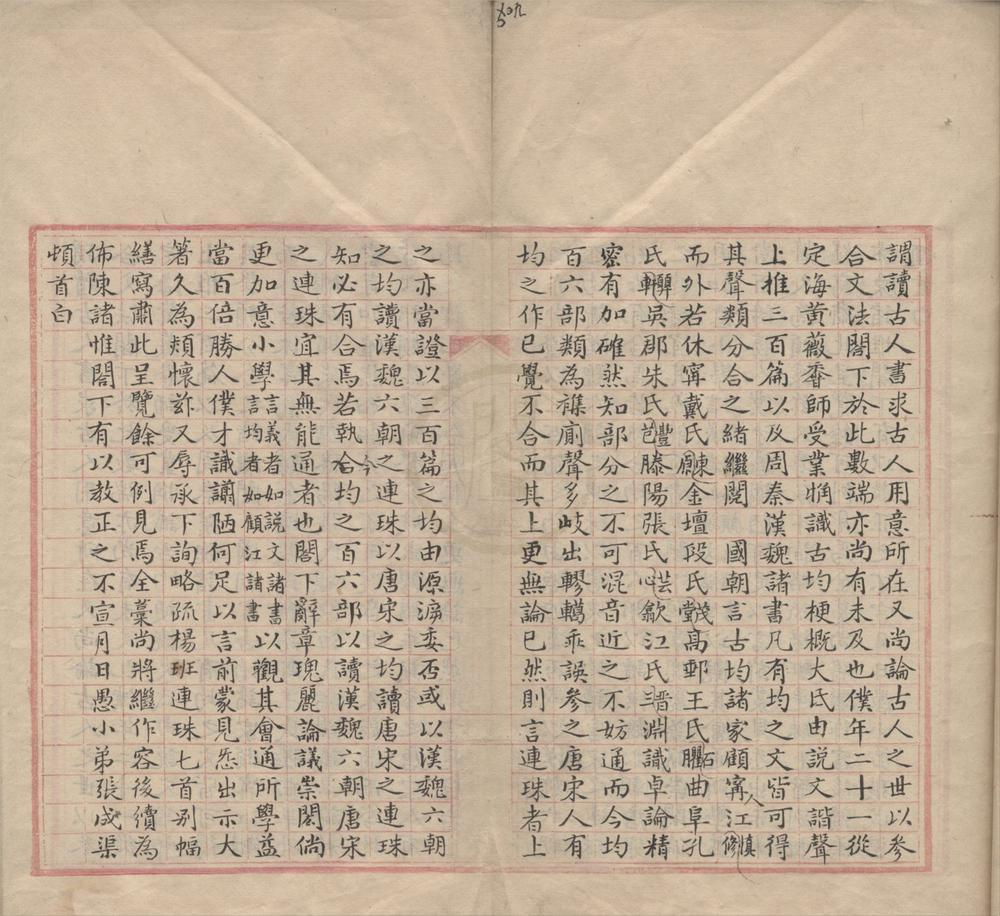 謂讀古人書求古人用意所在又尚論古人之世以參
合文法閣下於此數端亦尚有未及也僕年二十一從
定海黃薇香師受業惝識古均梗概大氐由說文諧聲
上推三百篇以及周秦漢魏諸書凡有均之文皆可得
其聲類分合之緒繼閱 國朝言古均諸家顧寧人江慎修
而外若休寧戴氏東原金壇段氏懋堂高郵王氏石臞曲阜孔
氏顨軒吳郡朱氏豐芑滕陽張氏芸心歙江氏晉三淵識卓論精
密有加確然知部分之不可混音近之不妨通而今均
百六部類為襍廁聲多岐出轇轕乖誤參之唐宋人有
均之作已覺不合而其上更無論已然則言連珠者上
之亦當證以三百篇之均由源泝委否或以漢魏六朝
之均讀漢魏六朝之連珠以唐宋之均讀唐宋之連珠
知必有合焉若執今均之百六部以讀漢魏六朝唐宋
之連珠宜其無能通者也閣下辭章瑰麗論議崇閎倘
更加意小學言義者如說文諸書言均者如顧江諸書以觀其會通所學益
當百倍勝人僕才識謭陋何足以言前蒙見恧出示大
箸久為頰懷玆又辱承下詢略疏楊班連珠七首別幅
繕寫肅此呈覽餘可例見焉全稾尚將繼作容後續為
佈陳諸惟閣下有以教正之不宣月日愚小弟張成渠
頓首白